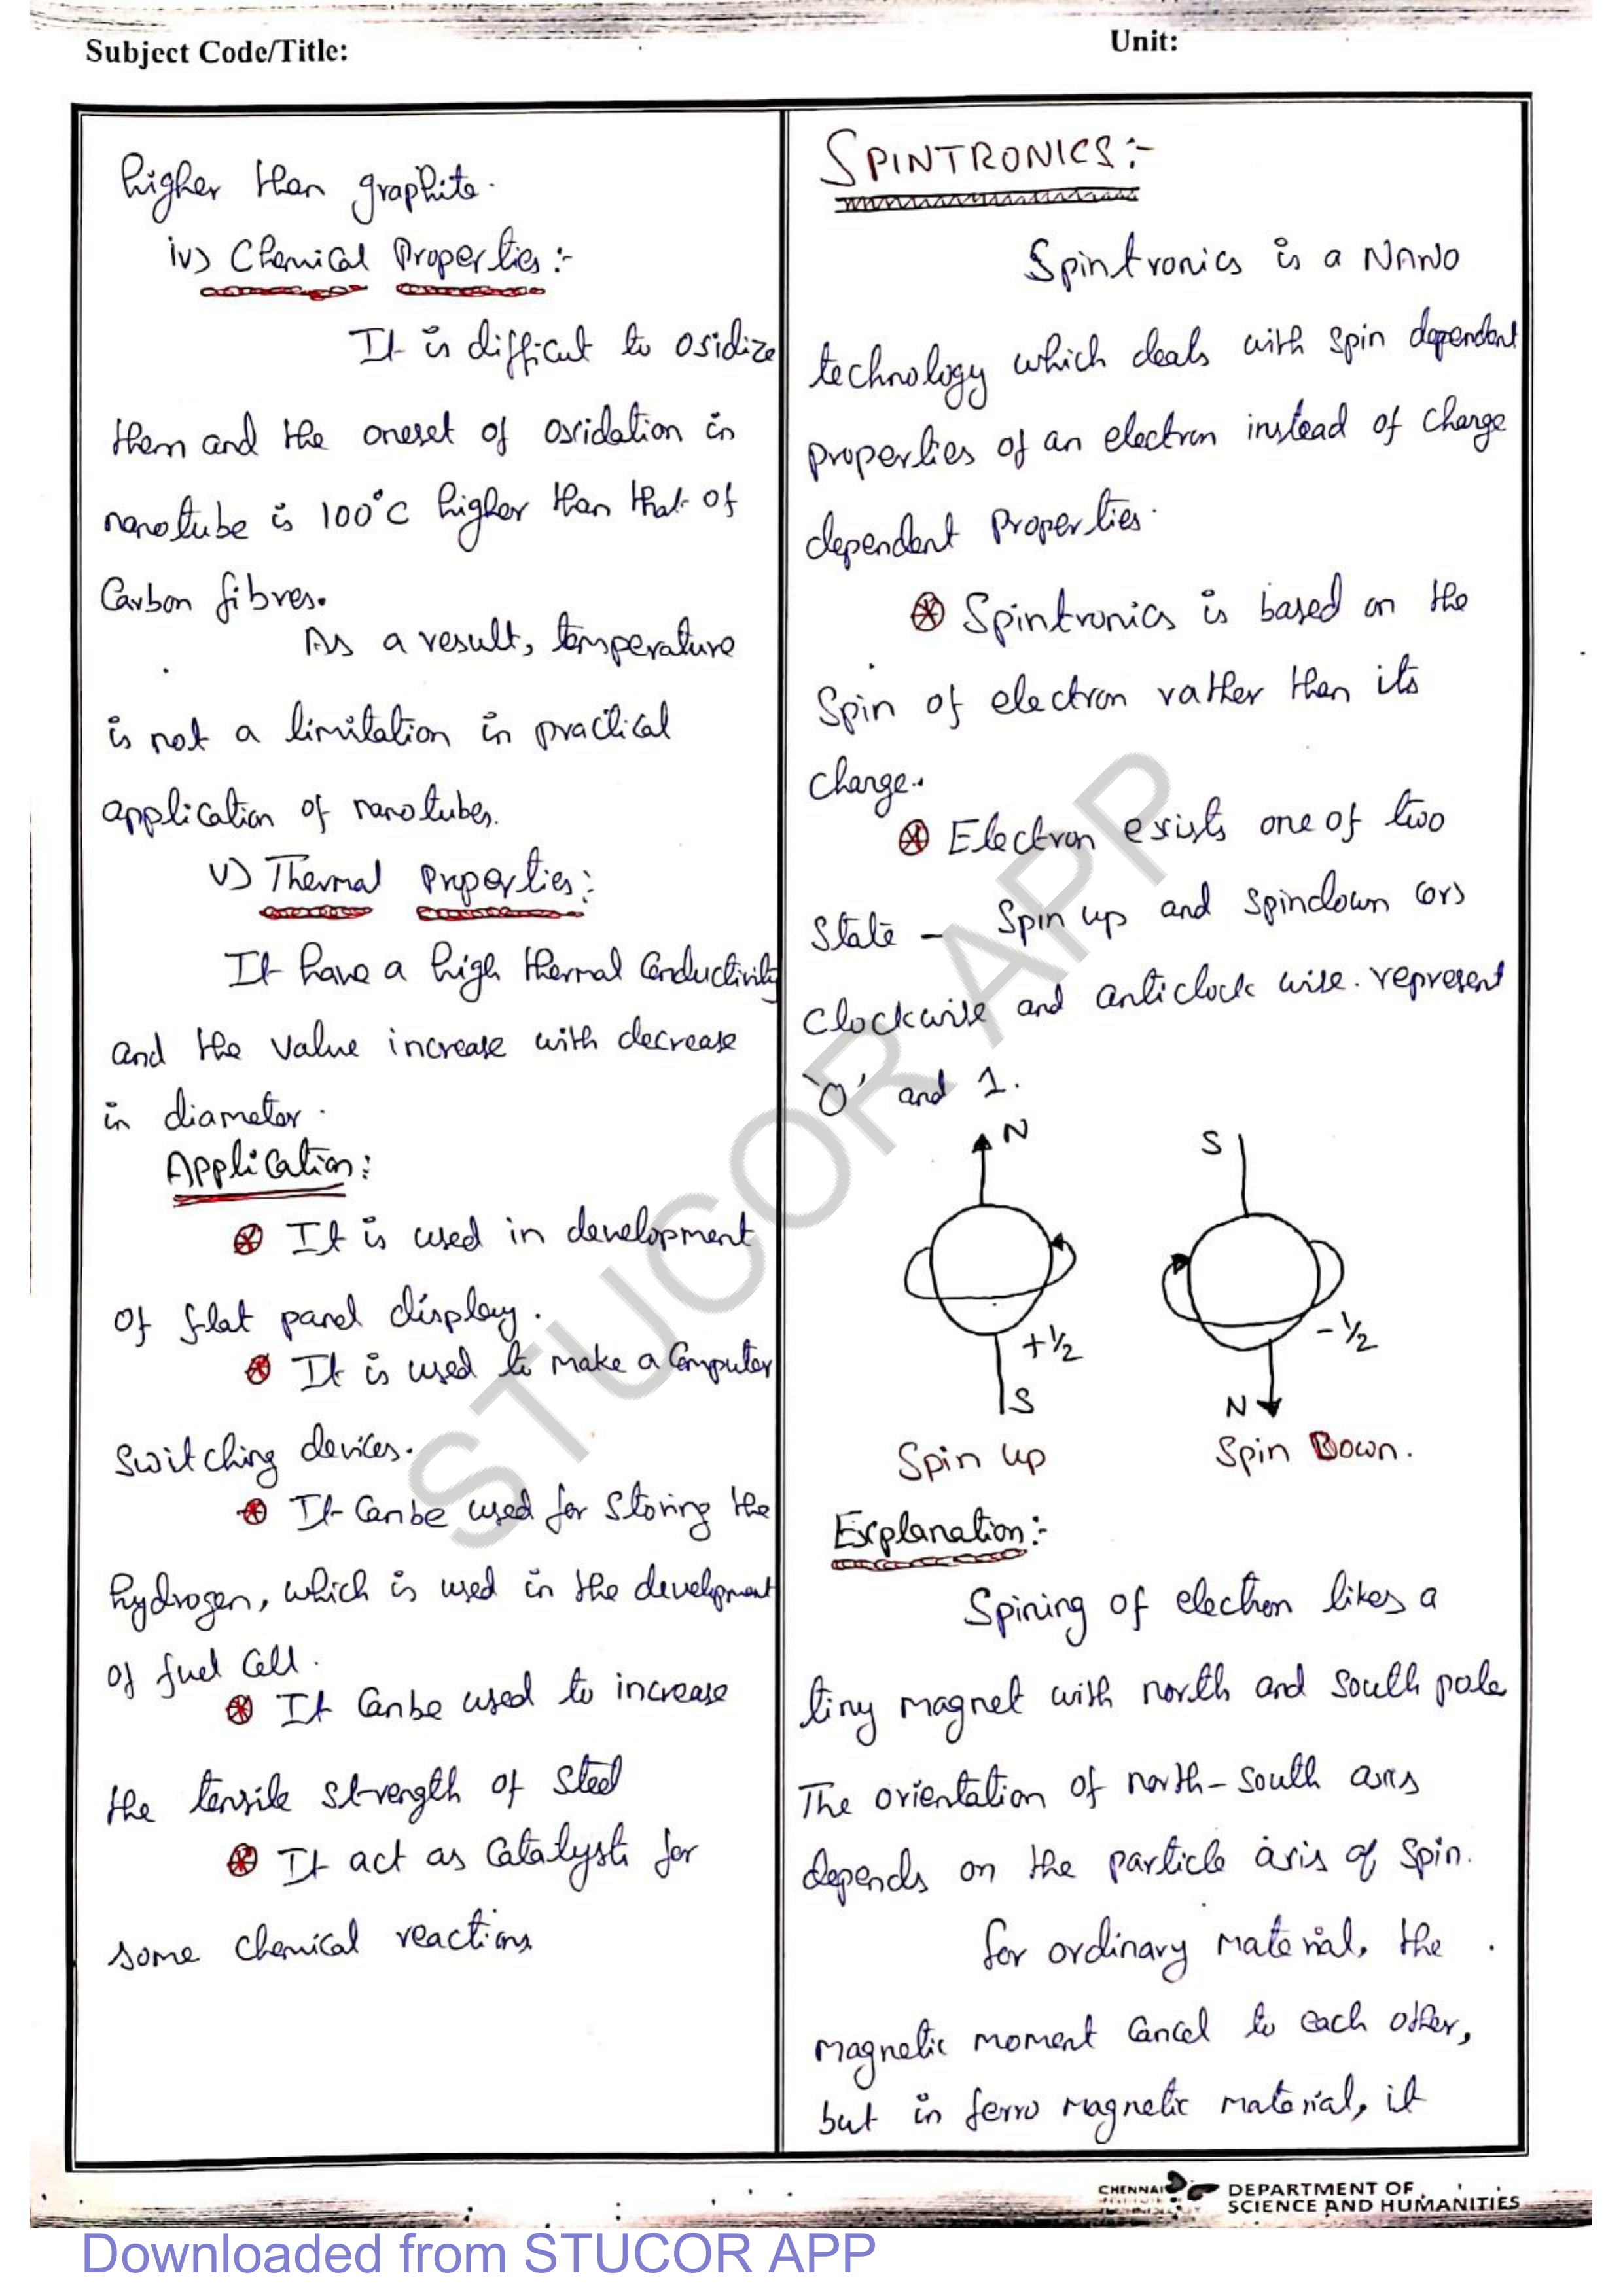 Subject Code/Title:
Unit:
higher than graphite.
iv) Chemical Properties :-
It is difficut to oxidize
them and the oneset of oxidation in
nanotube is 100°C higher than that of
Carbon fibres.
As a result, temperature
is not a limitation in practical
application of nanotubes.
v) Thermal Properties :
It have a high thermal conductivity
and the value increase with decrease
in diameter.
Application :
It is used in development
of flat panel display.
It is used to make a computer
switching devices.
It can be used for storing the
hydrogen, which is used in the development
of fuel cell.
It can be used to increase
the tensile strength of steel
It act as catalysts for
some chemical reactions
SPINTRONICS :-
Spintronics is a NANO
technology which deals with spin dependent
properties of an electron instead of charge
dependent properties.
Spintronics is based on the
Spin of electron rather than its
charge.
Electron exists one of two
State - Spin up and spindown (or)
Clockwise and anticlock wise. represent
'0' and 1.
N
S
+1/2
-1/2
S
N
Spin up
Spin Down.
Explanation :-
Spining of electron likes a
tiny magnet with north and south pole
The orientation of north-south axis
depends on the particle axis of spin.
for ordinary material, the
magnetic moment cancel to each other,
but in ferro magnetic material, it
CHENNAI
DEPARTMENT OF
SCIENCE AND HUMANITIES
STUCOR APP
Downloaded from STUCOR APP